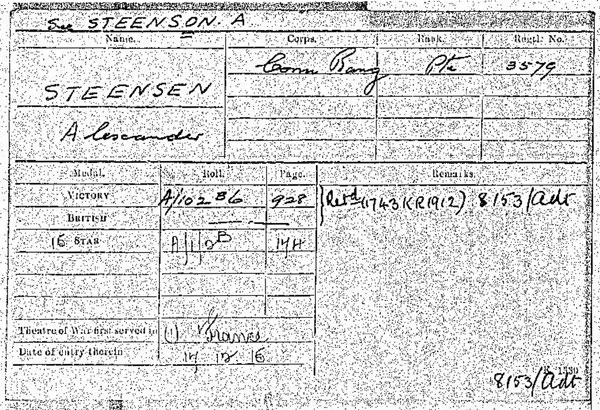 See STEENSON. A
Name. Corps. Rank. Regtl. No.
STEENSEN Conn Rang Pte 3579
Alexander
Medal. Roll. Page. Remarks.
VICTORY A/102 B6 928 } Retd (1743 KR 1912) 8153/Adt
BRITISH — " — "
15 STAR A/1/2B 174
Theatre of War first served in (1) France
Date of entry therein 17.12.15
8153/Adt